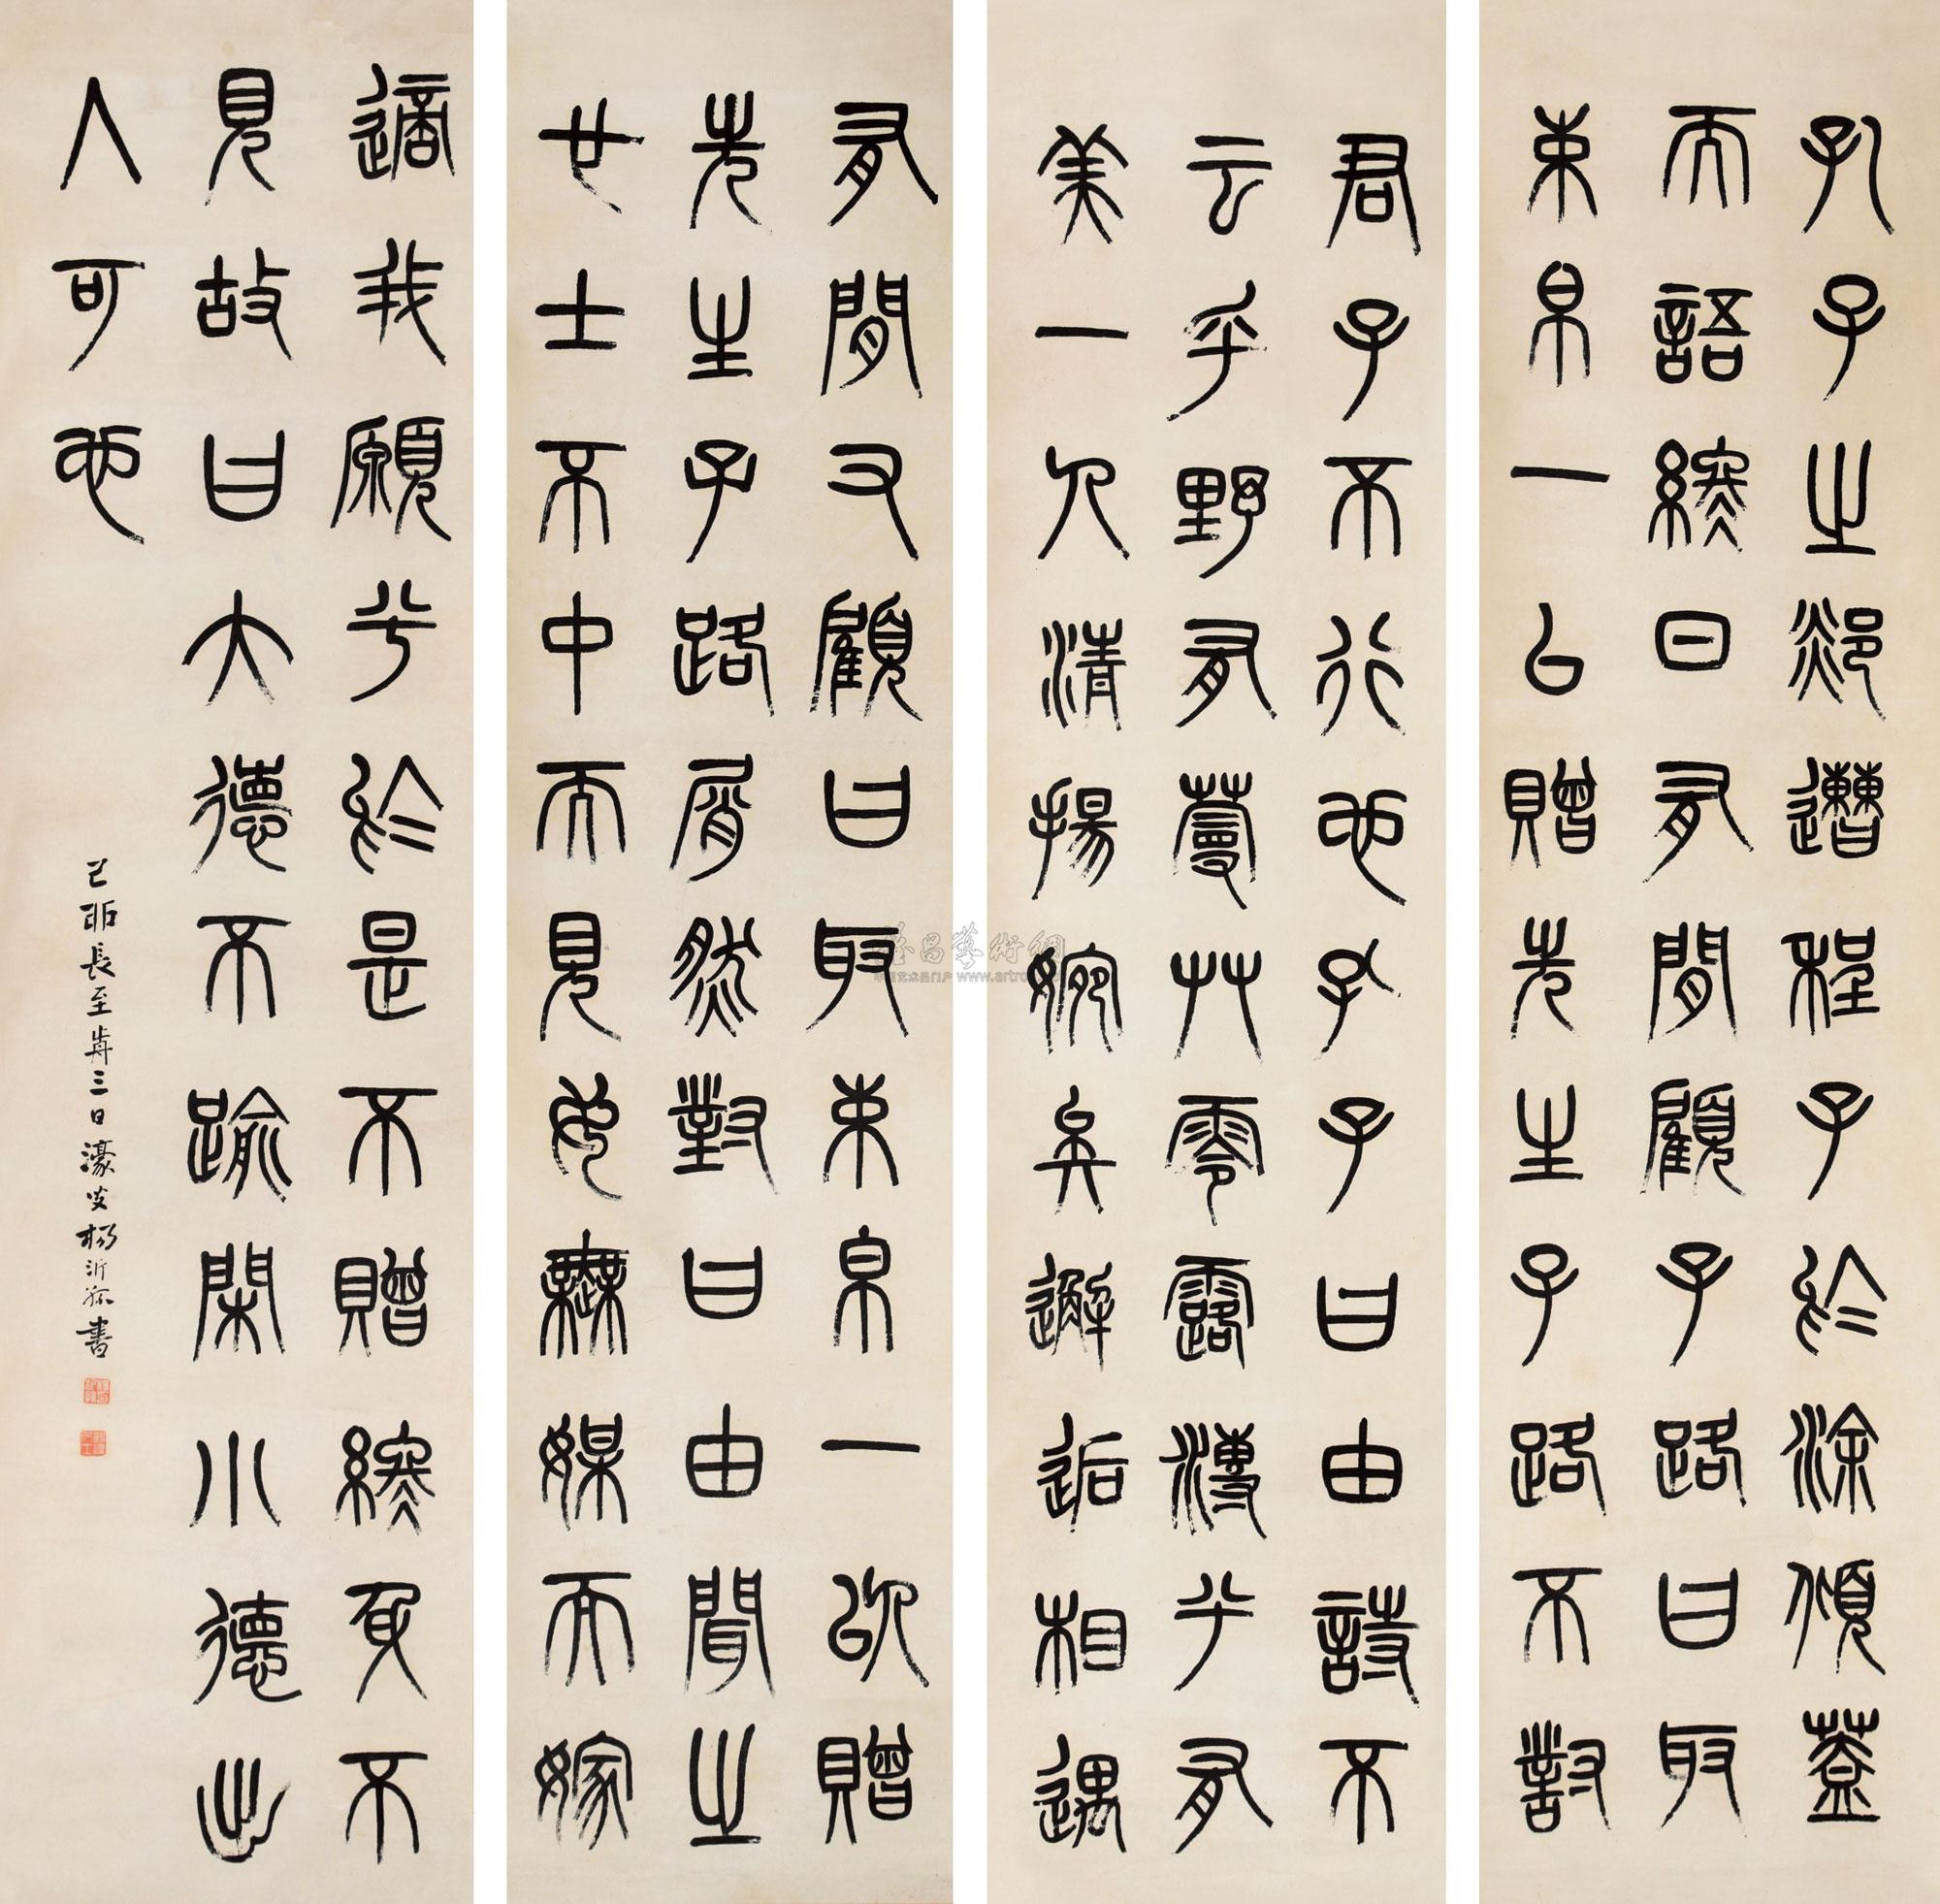 孔子之郯遭程子於涂傾蓋
而語終日有間顧子路曰取
束帛一以贈先生子路不對
有間又顧曰取束帛一以贈
先生子路屑然對曰由聞之
也士不中而見女無媒而嫁
君子不行也孔子曰由詩不
云乎野有蔓艸零露漙兮有
美一人清揚婉矣邂逅相遇
適我願兮於是不贈終身不
見故曰大德不踰閑小德出
入可也
己卯長至前三日濠叟楊沂孫書